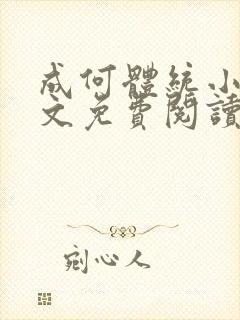 成何體統小
文免費閱讀
剜心人